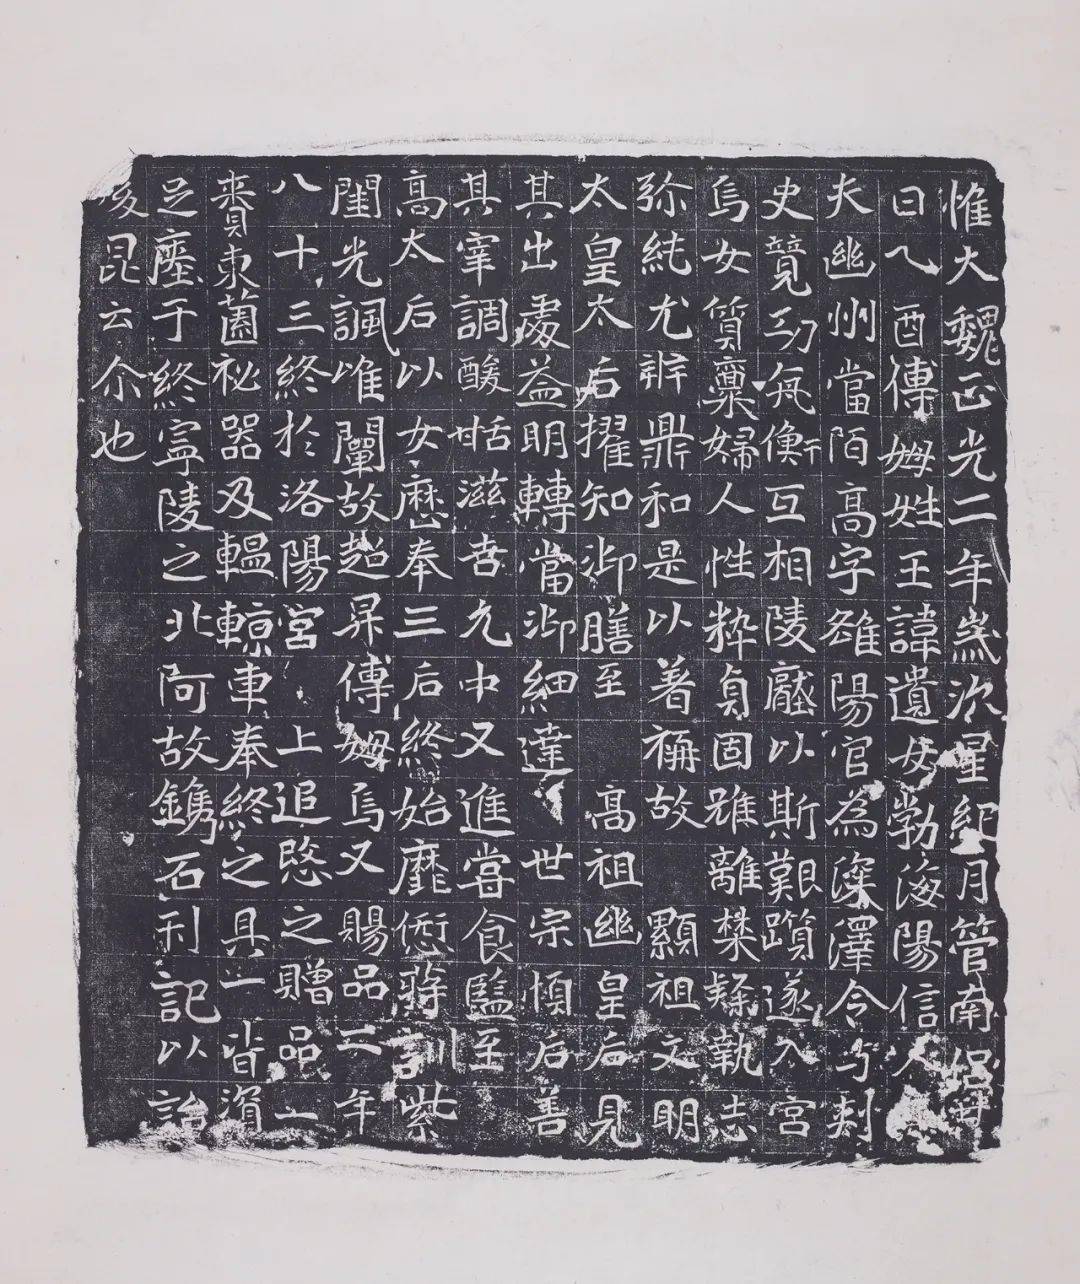 惟大魏正光二年歲次星紀月管南呂廿
日乙酉傅姆姓王諱遺女勃海陽信人
夫幽州當陌高字雒陽官為深澤令与刾
史競功亢衡互相陵壓以斯艱躓遂入宮
焉女質稟婦人性粹貞固雖離禁隸執志
弥純尤辨鼎和是以著稱故顯祖文明
太皇太后擢知御膳至高祖幽皇后見
其出處益明轉當御細達世宗順后善
其宰調酸甛滋味允中又進嘗食監至
高太后以女歷奉三后終始靡愆蔣訓紫
闈光諷唯闡故超昇傅姆焉又賜品二年
八十三終於洛陽宮上追愍之贈品一
賚東薗祕器及轀輬車奉終之具一皆資
足塵于終寧陵之北阿故鐫石刊記以詒
後昆云尒也